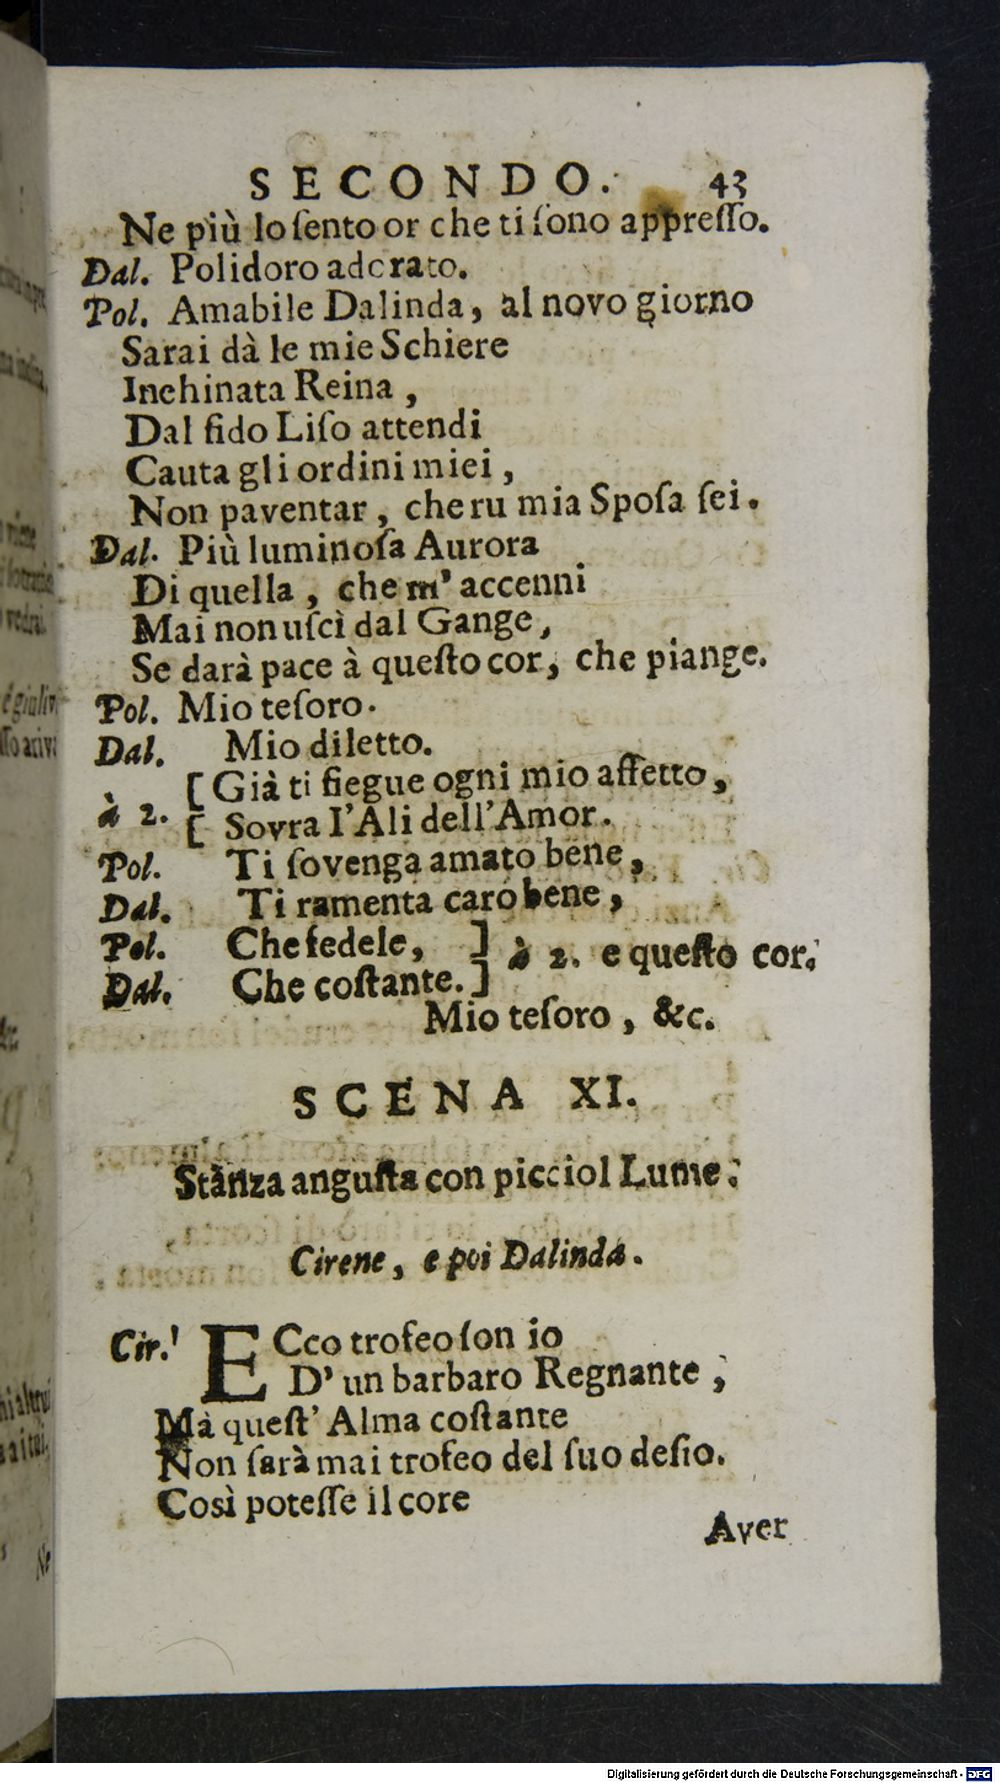 SECONDO. 43
Ne più lo ſento or che ti ſono appreſſo.
Dal. Polidoro adorato.
Pol. Amabile Dalinda, al novo giorno
Sarai dà le mie Schiere
Inchinata Reina,
Dal fido Liſo attendi
Cauta gli ordini miei,
Non paventar, che ru mia Spoſa ſei.
Dal. Più luminoſa Aurora
Di quella, che m' accenni
Mai non uſcì dal Gange,
Se darà pace à queſto cor, che piange.
Pol. Mio teſoro.
Dal. Mio diletto.
à 2. [Già ti ſiegue ogni mio affetto,
[Sovra l'Ali dell'Amor.
Pol. Ti ſovenga amato bene,
Dal. Ti ramenta caro bene,
Pol. Che fedele, ] à 2. e queſto cor.
Dal. Che coſtante. ]
Mio teſoro, &c.
SCENA XI.
Stanza anguſta con picciol Lume.
Cirene, e poi Dalinda.
Cir. ECco trofeo ſon io
D' un barbaro Regnante,
Mà queſt' Alma coſtante
Non ſarà mai trofeo del ſuo deſio.
Così poteſſe il core
Aver
Digitalisierung gefördert durch die Deutsche Forschungsgemeinschaft - DFG